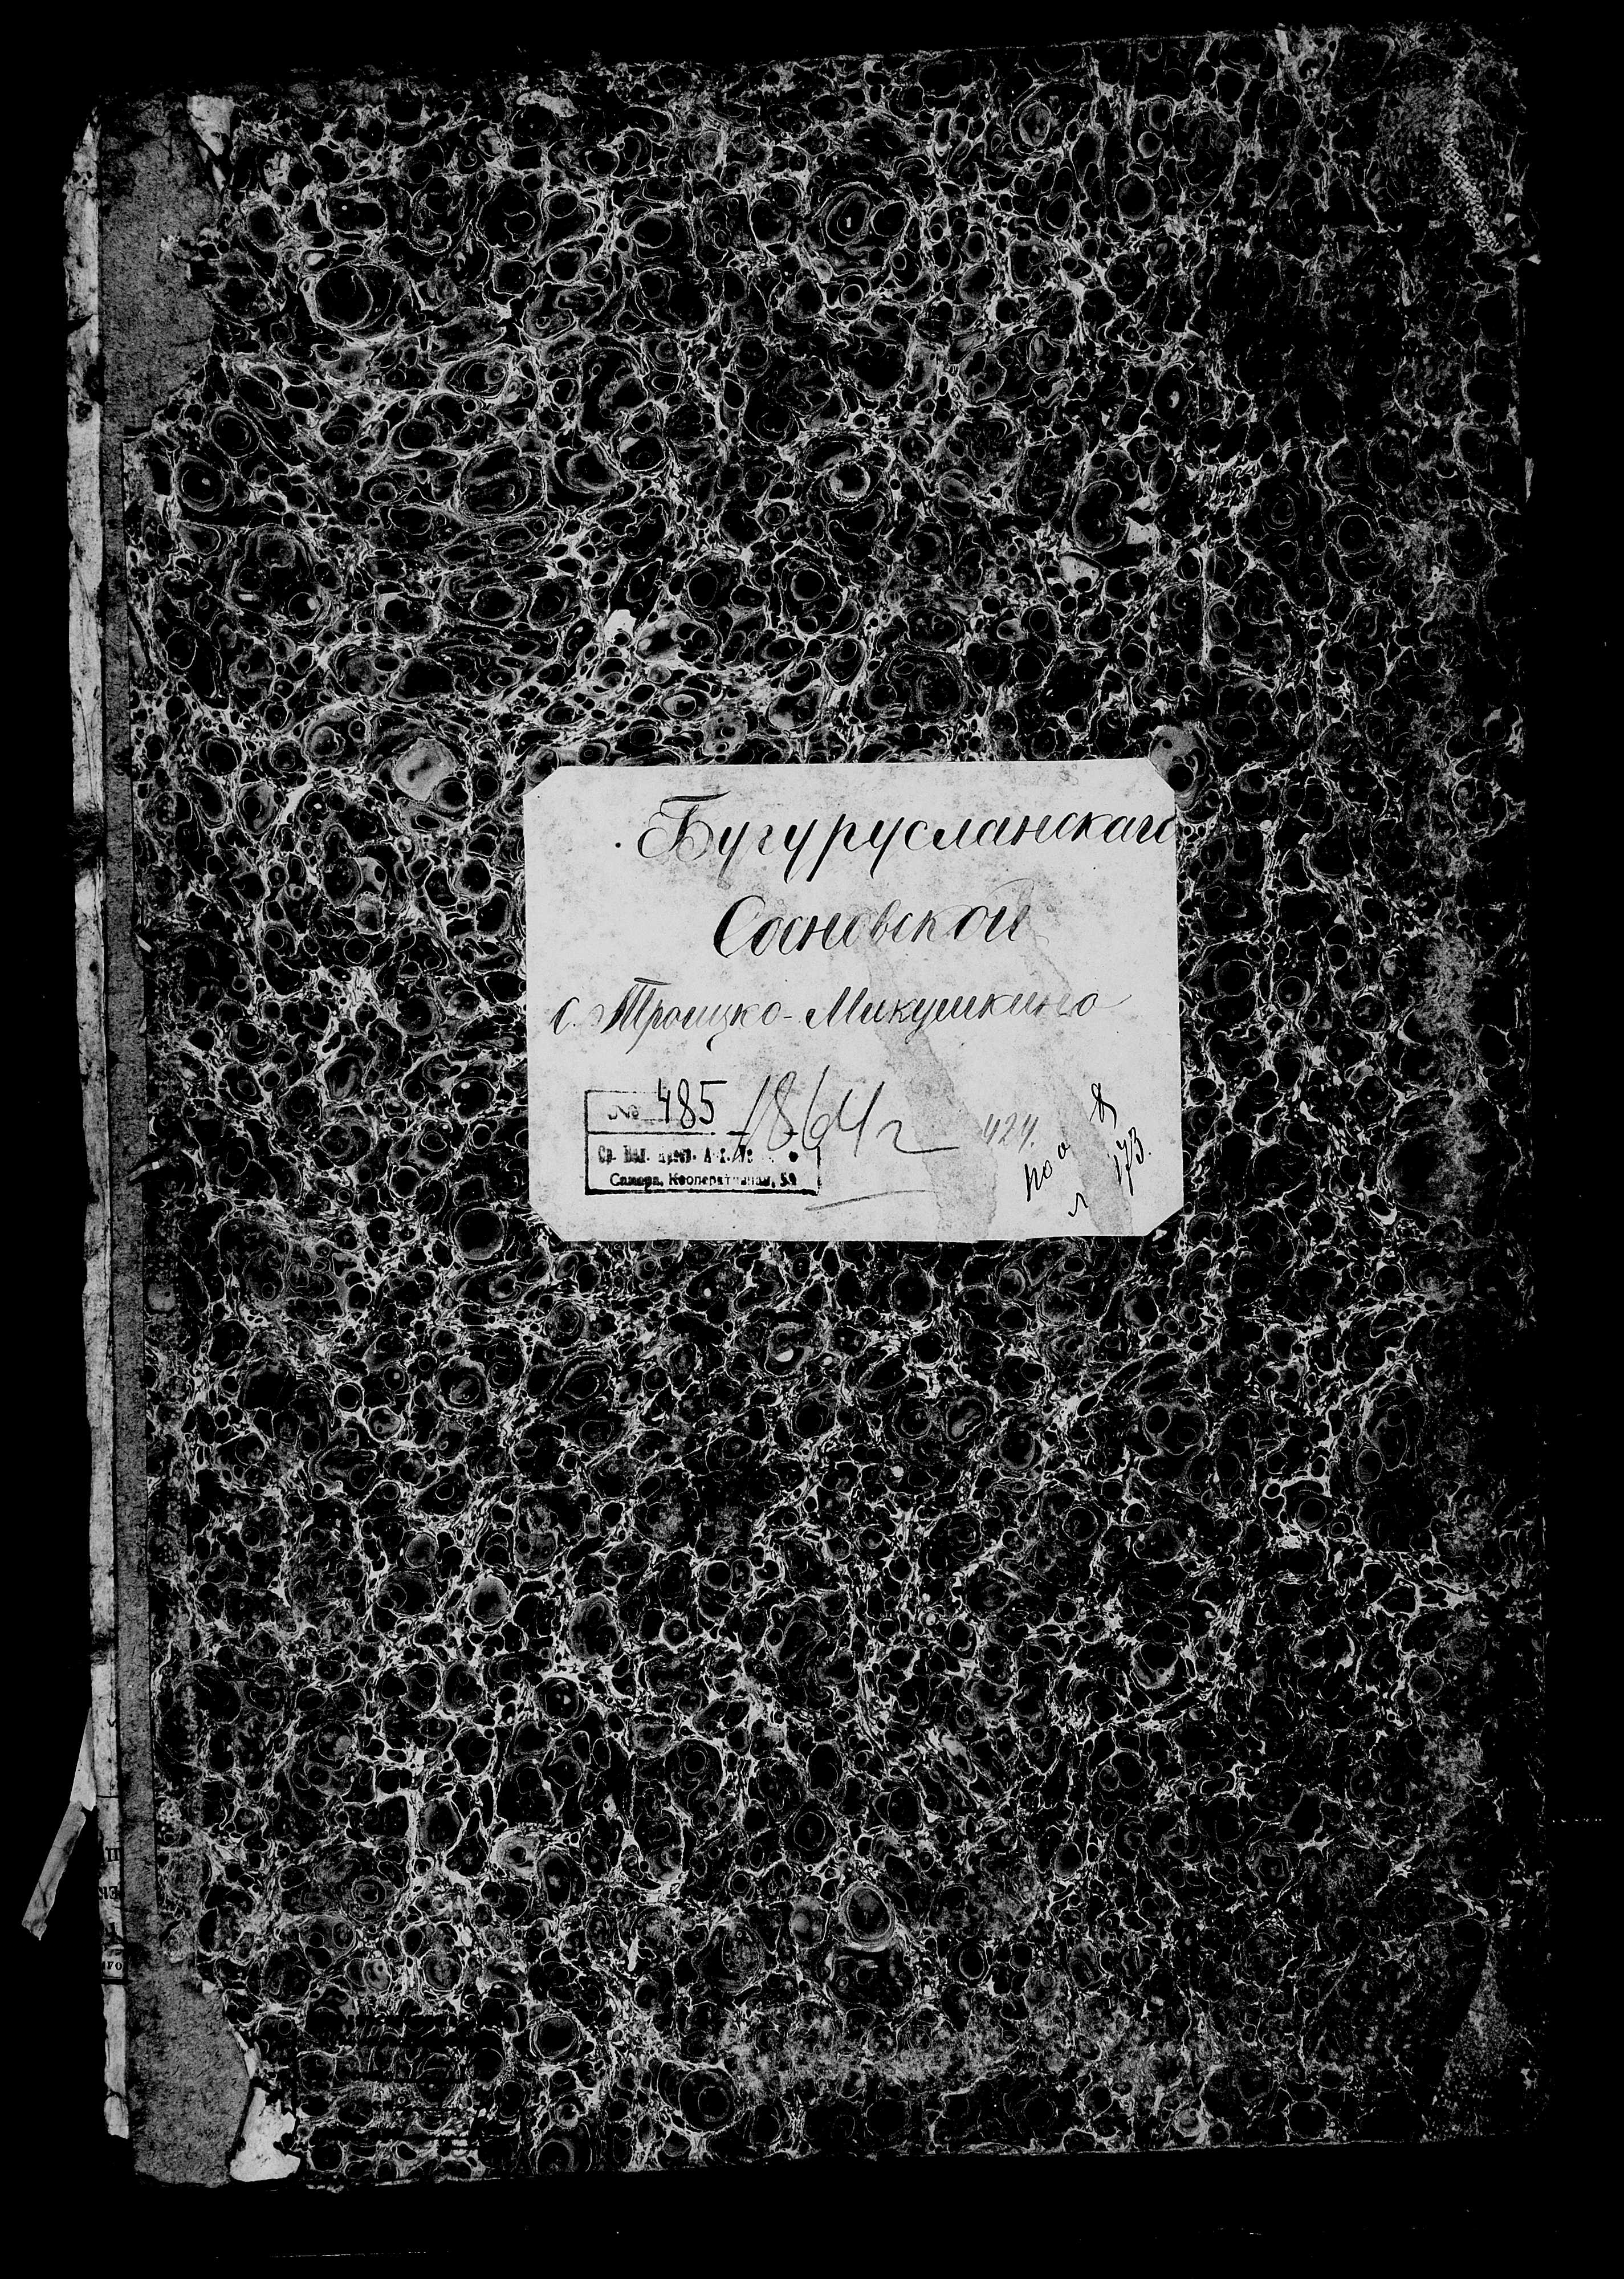 Бугурусланскаго
Сосновской
с. Троицко-Микушкино
№ 485 1864 г 424.
Самара, Кооперативная, 59
173.